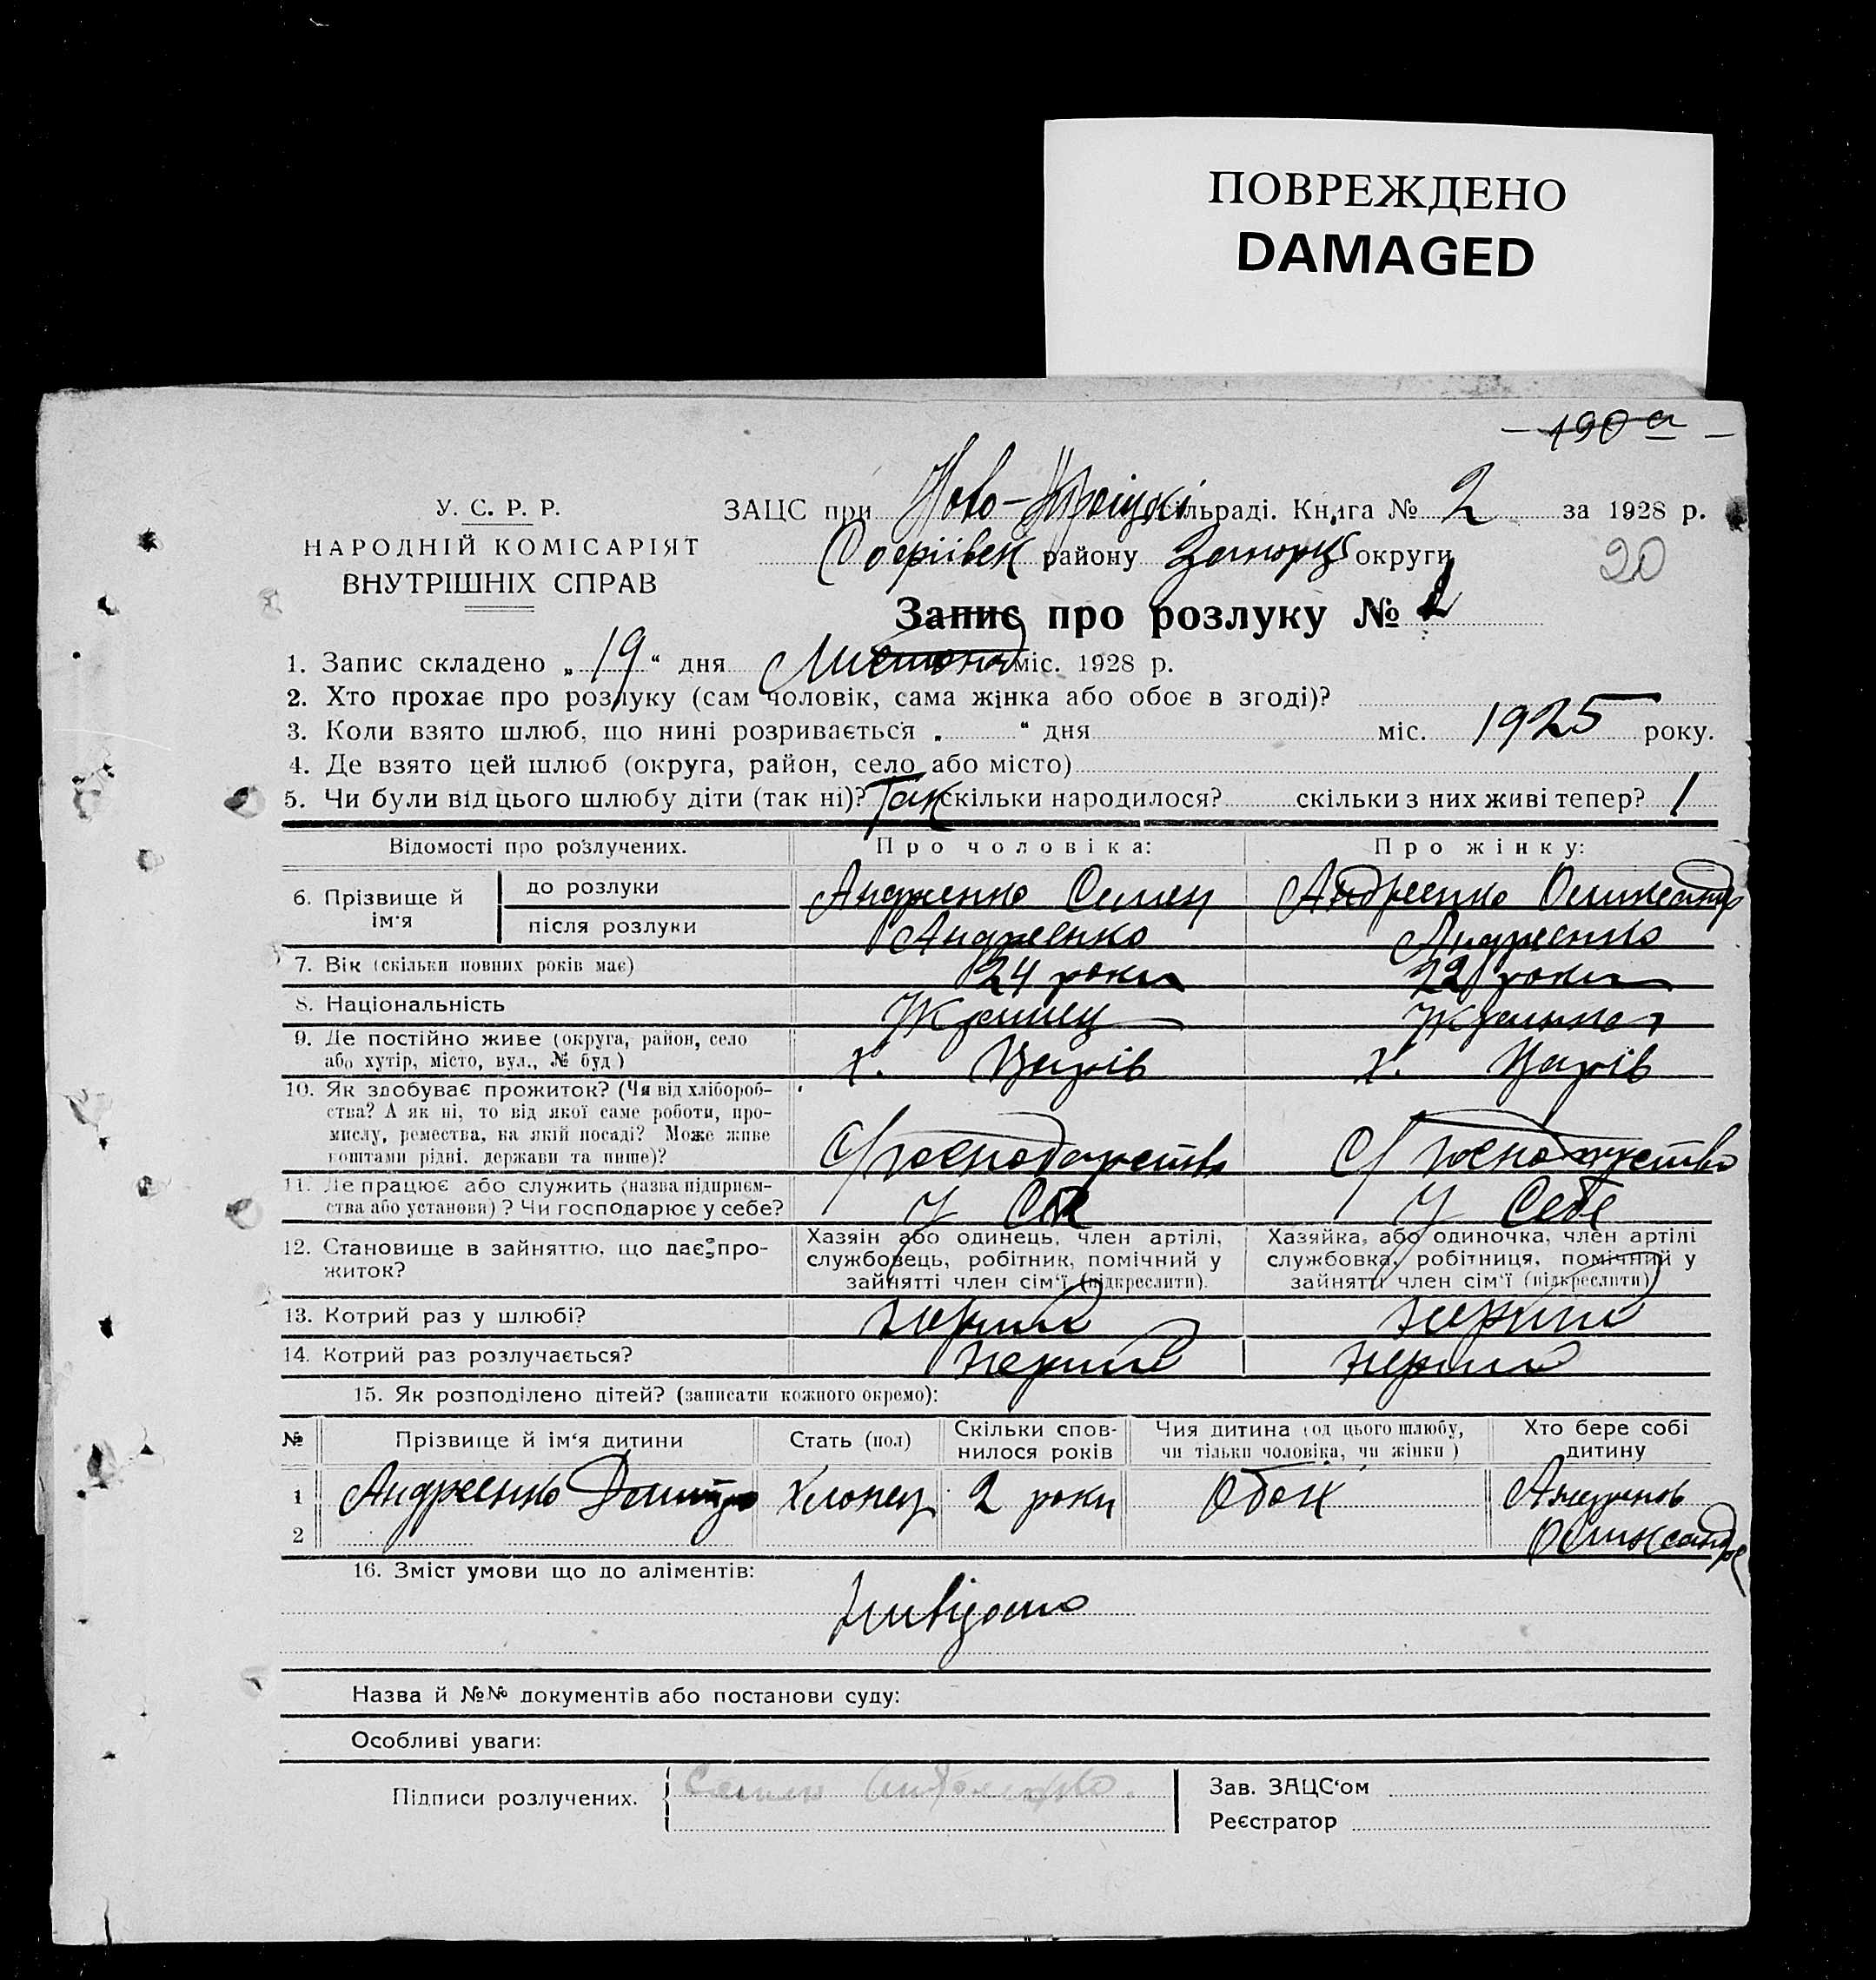 ПОВРЕЖДЕНО
DAMAGED
190 а
У. С. Р. Р.
НАРОДНІЙ КОМІСАРІЯТ
ВНУТРІШНІХ СПРАВ
ЗАЦС при Ново-Троіцкі сільраді. Книга № 2 за 1928 р.
Софіівск району Запоріз округи
20
Запис про розлуку № 1
1. Запис складено „ 19 “ дня Листопад міс. 1928 р.
2. Хто прохає про розлуку (сам чоловік, сама жінка або обоє в згоді)?
3. Коли взято шлюб, що нині розривається „ “ дня міс. 1925 року.
4. Де взято цей шлюб (округа, район, село або місто)
5. Чи були від цього шлюбу діти (так ні)? Так скільки народилося? скільки з них живі тепер? 1
Відомості про розлучених. Про чоловіка: Про жінку:
6. Прізвище й ім'я
до розлуки Андреенко Семен Андреенко Олександр
після розлуки Андреенко Андреенко
7. Вік (скільки повних років має) 24 роки 22 роки
8. Національність Украінец Украінка
9. Де постійно живе (округа, район, село
або хутір, місто, вул., № буд.) х. Царів х. Царів
10. Як здобуває прожиток? (Чи від хлібороб-
ства? А як ні, то від якої саме роботи, про-
мислу, ремества, на якій посаді? Може живе
коштами рідні, держави та инше)? С/господарство С/господарство
11. Де працює або служить (назва підприєм-
ства або установи)? Чи господарює у себе? У Себе У Себе
12. Становище в зайняттю, що дає про-
житок?
Хазяїн або одинець, член артілі,
службовець, робітник, помічний у
зайнятті член сім'ї (підкреслити).
Хазяйка, або одиночка, член артілі
службовка, робітниця, помічний у
зайнятті член сім'ї (підкреслити)
13. Котрий раз у шлюбі? перший перший
14. Котрий раз розлучається? перший перший
15. Як розподілено дітей? (записати кожного окремо):
№ Прізвище й ім'я дитини Стать (пол) Скільки спов-
нилося років Чия дитина (од цього шлюбу,
чи тільки чоловіка, чи жінки) Хто бере собі
дитину
1 Андреенко Дмитро Хлопец 2 роки Обох Андреенко
2 Олександр
16. Зміст умови що до аліментів:
Назва й №№ документів або постанови суду:
Особливі уваги:
Підписи розлучених. Семен Андреенко.
Зав. ЗАЦС'ом
Реєстратор